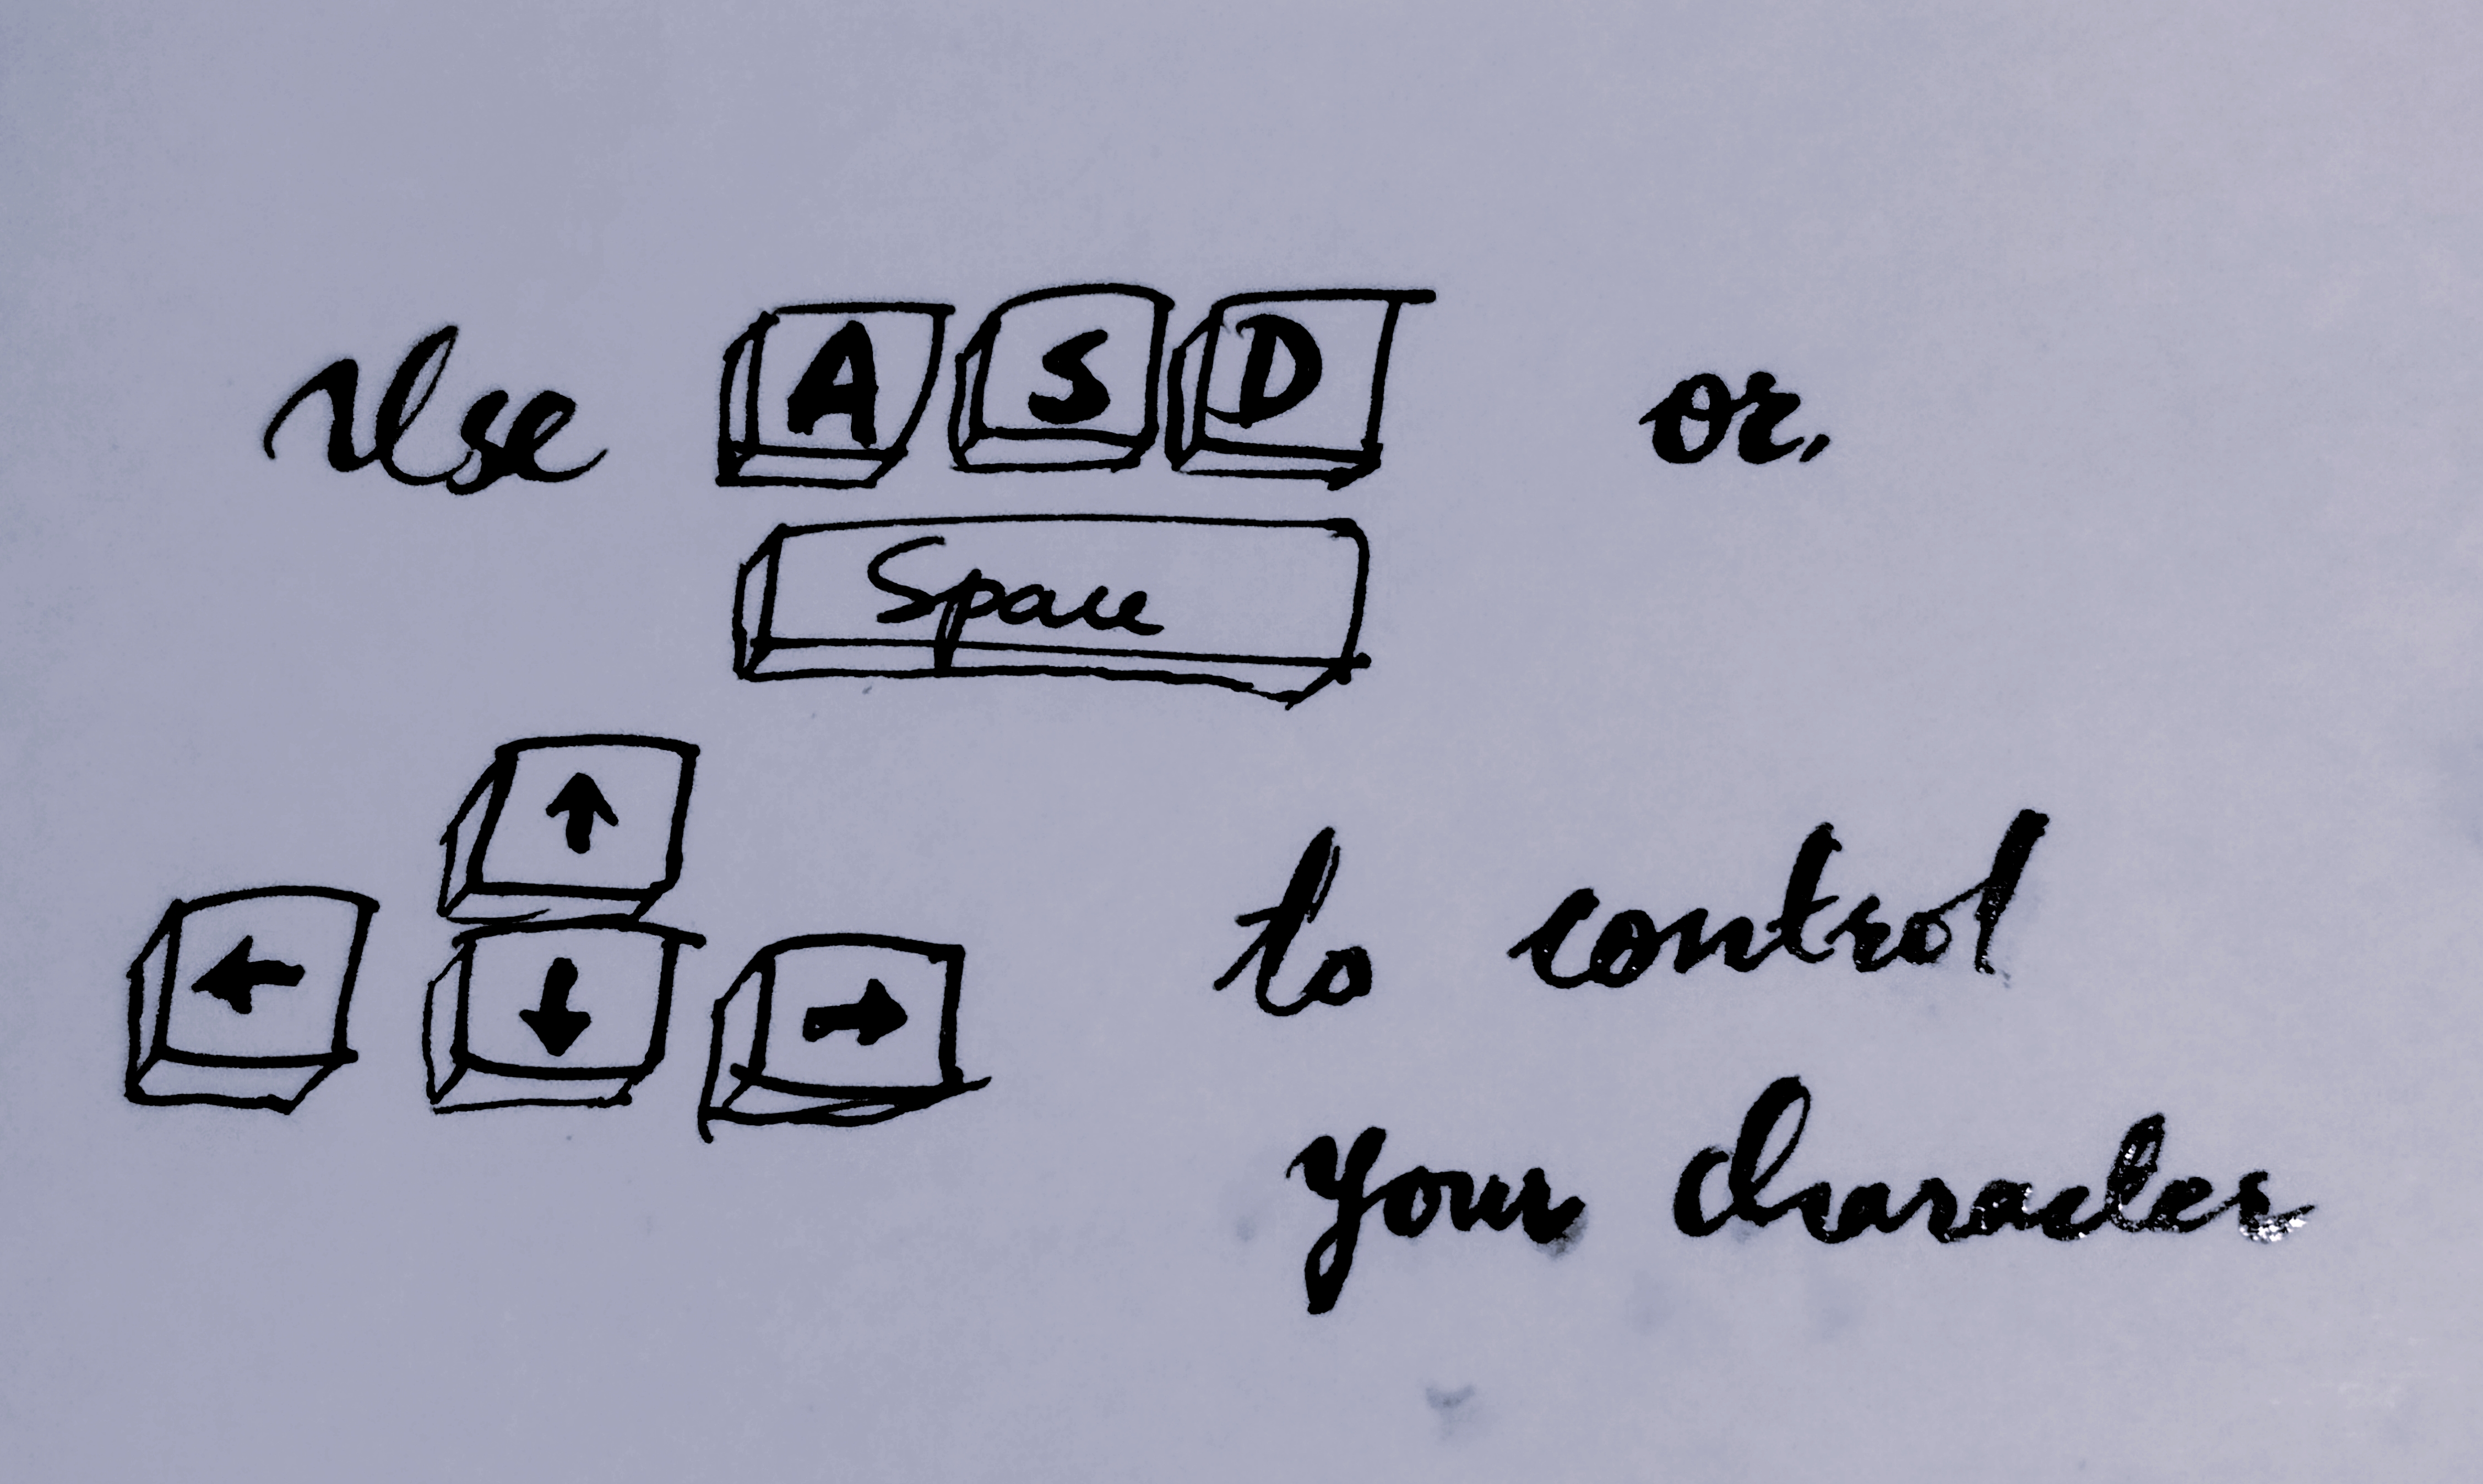 Use A S D or,
Space
↑
← ↓ → to control
your character